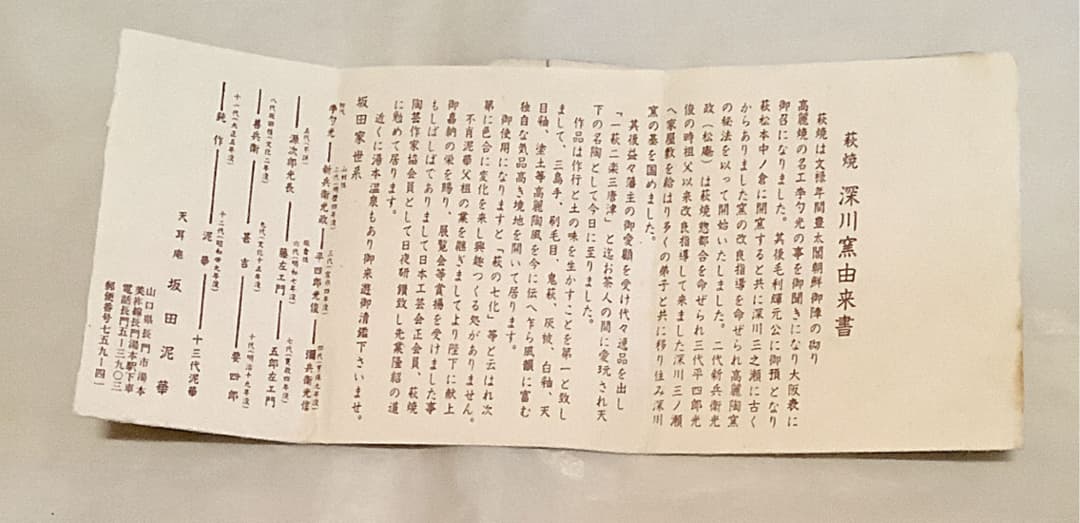 萩焼 深川窯由来書
萩焼は文禄年間豊太閤朝鮮御陣の砌り
高麗焼の名工李勺光の事を御聞きになり大阪表に
御召になりました。其後毛利輝元公に御預となり
萩松本中ノ倉に開窯すると共に深川三之瀬に古く
からありました窯の改良指導を命ぜられ高麗陶窯
の秘法を以って開始いたしました。二代新兵衛光
政(松庵)は萩焼惣都合を命ぜられ三代平四郎光
俊の時祖父以来改良指導して来ました深川三ノ瀬
へ家屋敷を給はり多くの弟子と共に移り住み深川
窯の基を固めました。
其後益々藩主の御愛顧を受け代々逸品を出し
「一萩二楽三唐津」と迄お茶人の間に愛玩され天
下の名陶として今日に至りました。
作品は作行と土の味を生かすことを第一と致し
まして、三島手、刷毛目、鬼萩、灰被、白釉、天
目釉、塗土等高麗陶風を今に伝へ乍ら風韻に富む
独自な気品高き境地を開いて居ります。
御使用になりますと「萩の七化」等と云はれ次
第に色合に変化を来し興趣つくる処がありません。
不肖泥華父祖の業を継ぎましてより陛下に献上
御嘉納の栄を賜り、展覧会等賞揚を受けました事
もしばしばでありまして日本工芸会正会員、萩焼
陶芸作家協会員として日夜研鑽致し先業隆紹の道
に勉めて居ります。
近くに湯本温泉もあり御来遊御清鑑下さいませ。
坂田家世系
初代
李勺光
新兵衛光政
平四郎光俊
彌兵衛光信
五代(不詳)
源次郎光長
藤左エ門
五郎左エ門
善兵衛
甚吉
要四郎
十一代(大正五年没)
鈍作
十二代(昭和廿九年没)
泥華
十三代泥華
天耳庵 坂田泥華
山口県長門市湯本
美祢線長門湯本駅下車
電話長門五―三九〇三
郵便番号七五九―四一